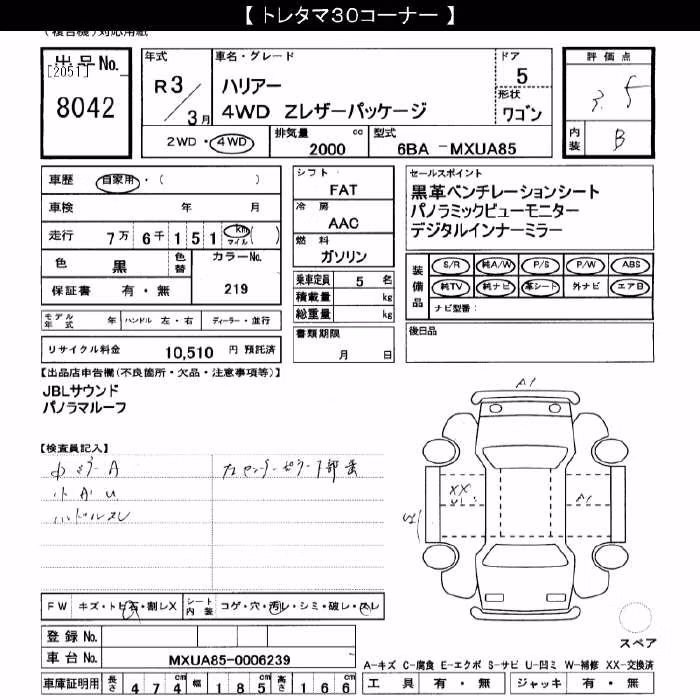 【 トレタマ30コーナー 】
(複合機)対応用紙
出品No.
[2051]
8042
年式
R3/3月
車名・グレード
ハリアー
4WD Zレザーパッケージ
ドア
5
形状
ワゴン
評価点
3.5
内装
B
2WD・4WD
排気量 2000 cc
型式 6BA -MXUA85
車歴 自家用・( )
車検 年 月
走行 7万6千151 km マイル ( )
色 黒 色替 カラーNo.
保証書 有・無 219
モデル年式 年 ハンドル 左・右 ディーラー・並行
リサイクル料金 10,510 円 預託済
シフト
FAT
冷房
AAC
燃料
ガソリン
乗車定員 5 名
積載量 kg
総重量 kg
書類期限
月 日
セールスポイント
黒革ベンチレーションシート
パノラミックビューモニター
デジタルインナーミラー
装備品
S/R 純A/W P/S P/W ABS
純TV 純ナビ 革シート 外ナビ エアB
ナビ型番:
後日品
【出品店申告欄(不良箇所・欠品・注意事項等)】
JBLサウンド
パノラマルーフ
【検査員記入】
小キズA
ハンドルスレ
A1
XX
A1
FW キズ・トビ石・割レX シート内装 コゲ・穴・汚レ・シミ・破レ・スレ
登録No.
車台No. MXUA85-0006239
車庫証明用 長さ 474 cm 幅 185 cm 高さ 166 cm
スペア
A-キズ C-腐食 E-エクボ S-サビ U-凹ミ W-補修 XX-交換済
工具 有・無 ジャッキ 有・無